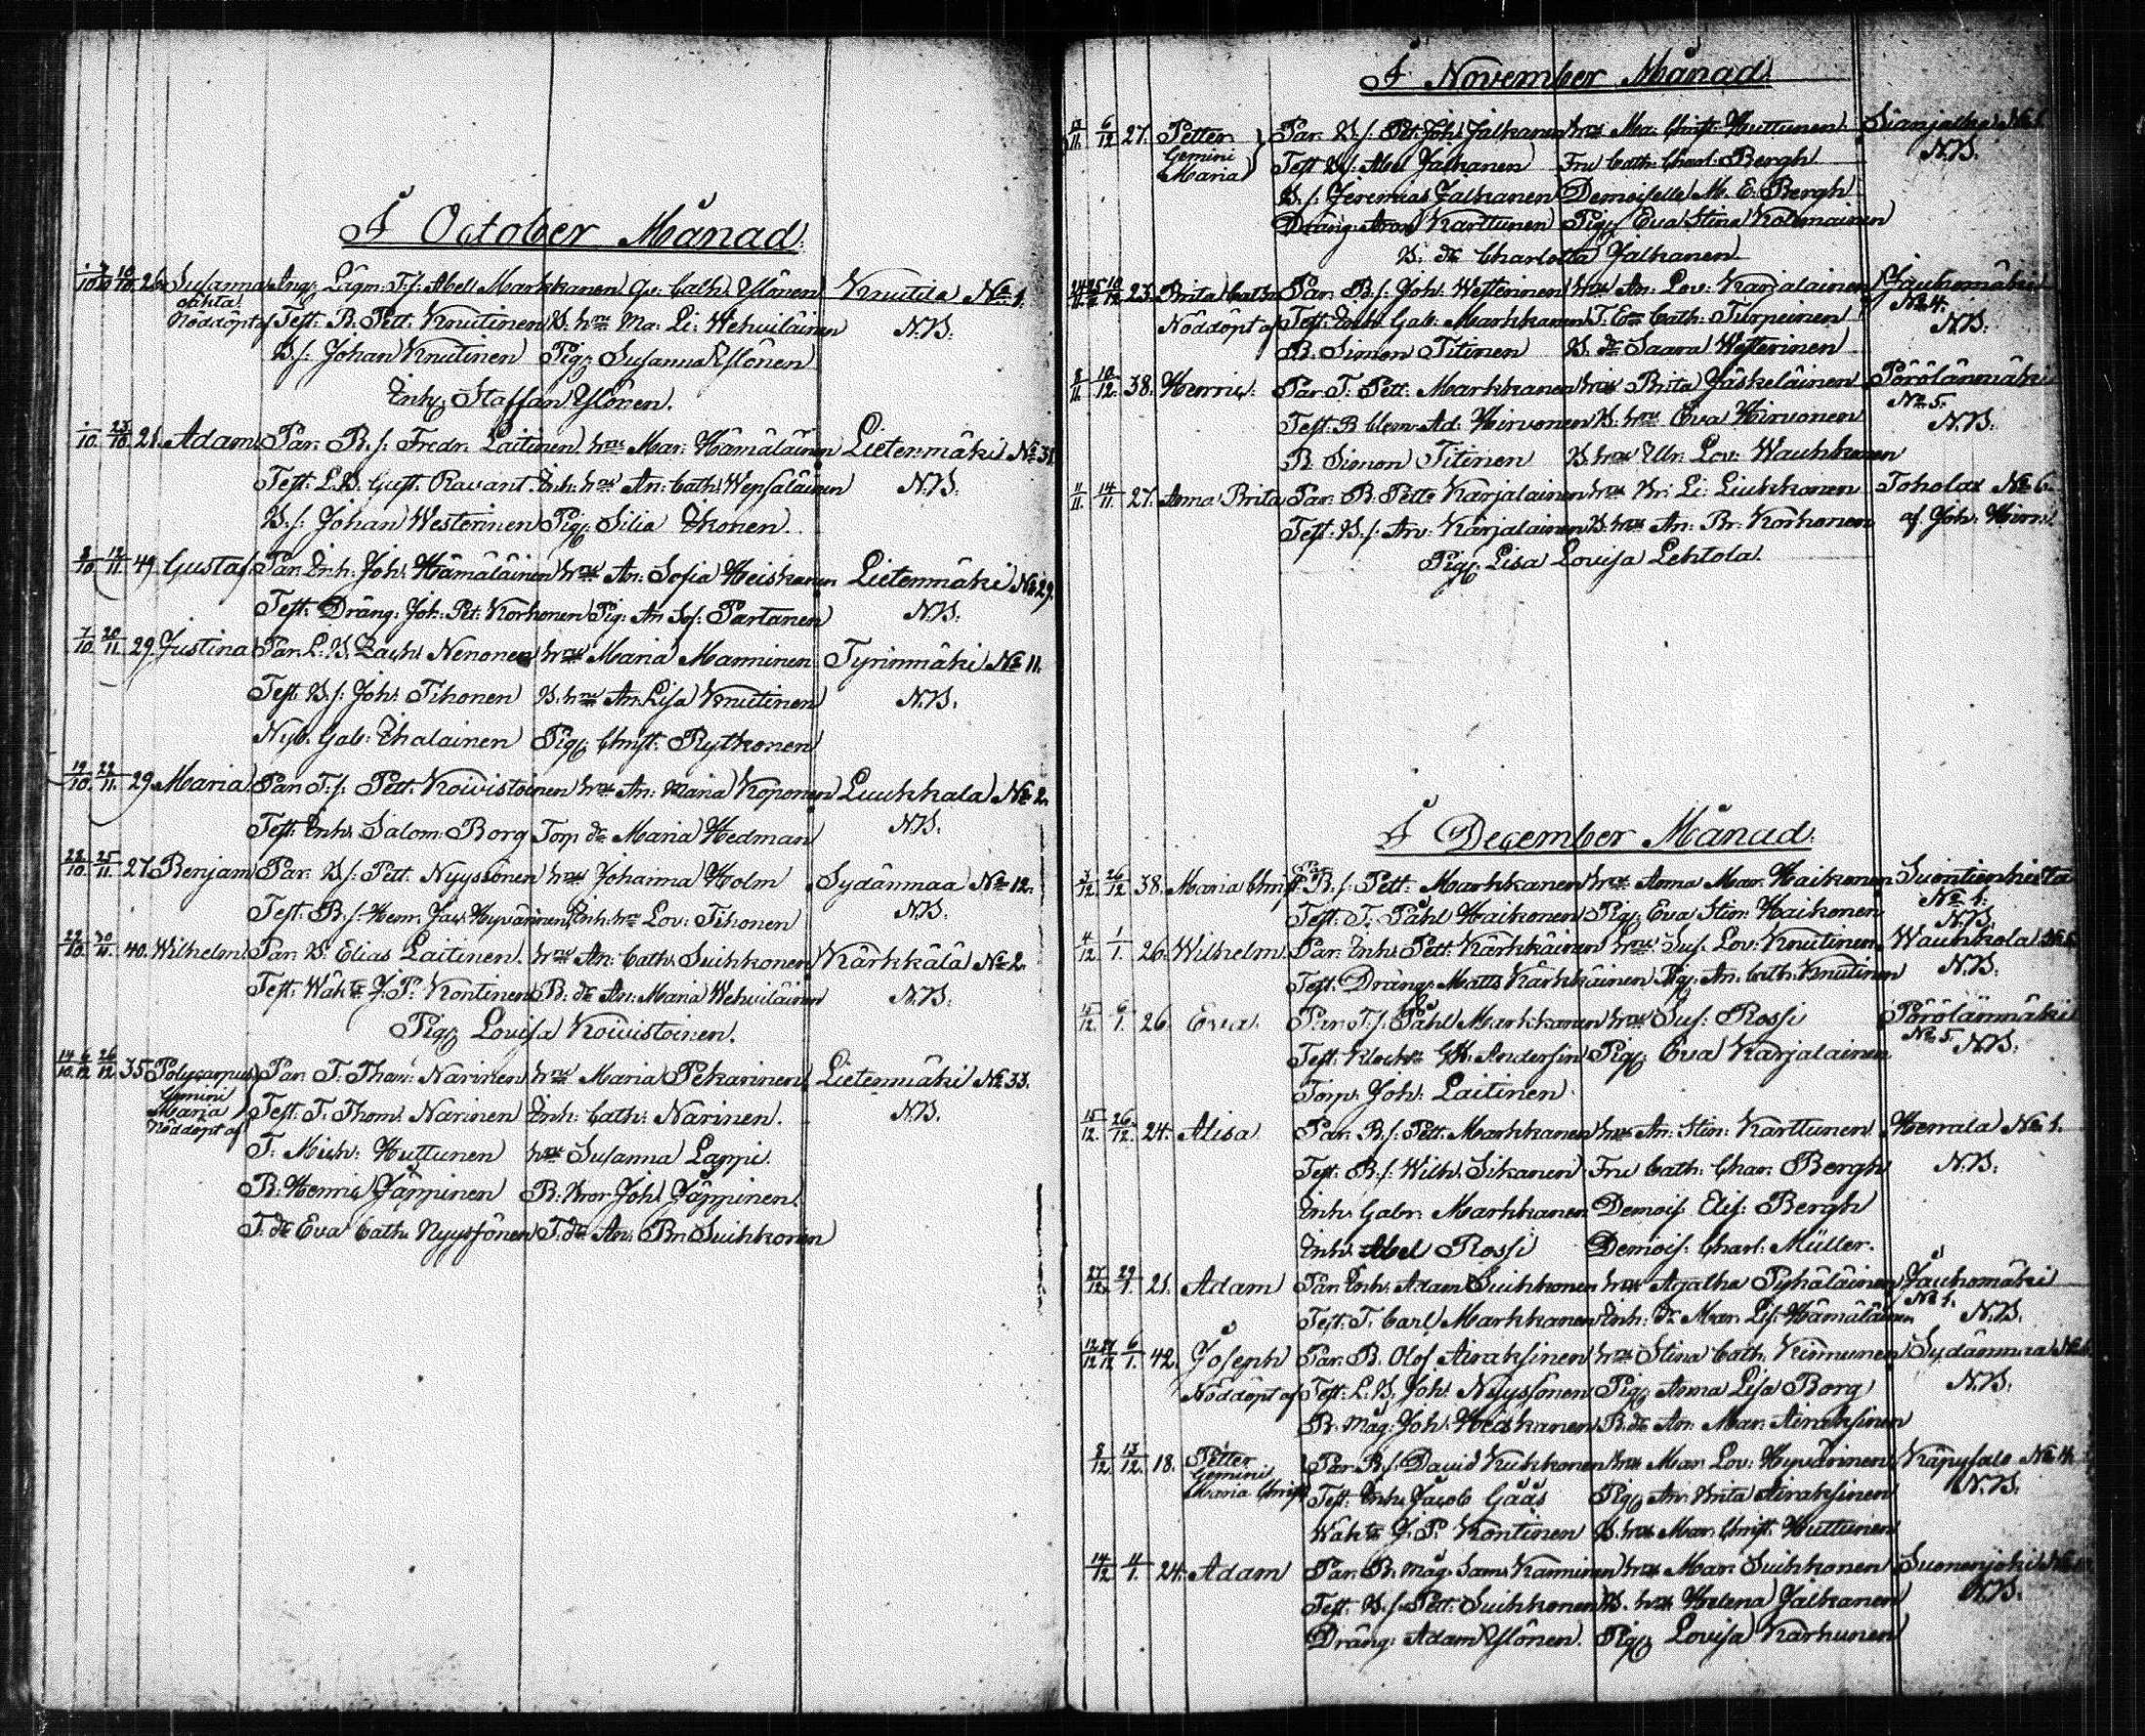 I October Månad.
10/10 26. Susanna Ang. Lägm. T.s. Abel Markkanen Qv. Cath. Ylönen Knutila No 1.
oäkta
Nöddöpt af Test. B. Pett. Knutinen B. hru Ma. Li. Wehviläinen N.B.
B.s. Johan Knutinen Pig. Susanna Ylönen
Inh. Staffan Ylönen.
1/10 23/10 21. Adam Par. B.s. Fredr. Laitinen hru Mar. Hämäläinen Lietenmäki No 31.
Test. L.B. Gust. Ravant. Inh. hru An. Cath. Wepsäläinen N.B.
B.s. Johan Westerinen Pig. Silia Ikonen.
8/10 12/11 49 Gustaf Par. Inh. Joh. Hämäläinen hru An. Sofia Heiskanen Lietenmäki No 29.
Test. Dräng. Joh. Pet. Korhonen Pig. An. Sof. Partanen N.B.
7/10 20/11 29 Justina Par. L.B. Zach. Nenonen hru Maria Manninen Tyrinmäki No 11.
Test. B.s. Joh. Tihonen B. hru An. Lisa Knutinen N.B.
Nyb. Gab. Ihalainen Pig. Christ. Rytkonen
19/10 22/11 29 Maria Par. T.s. Pett. Koivistoinen hru An. Maria Koponen Luukkala No 2.
Test. Inh. Salom. Borg Torp. dr Maria Hedman N.B.
22/10 25/11 27. Benjam Par. B.s. Pett. Nyyssönen hru Johanna Holm Sydänmaa No 12.
Test. B.s. Henr. Jac. Hyvärinen Inh. hru Lov. Tihonen N.B.
22/10 30/11 40. Wilhelm Par. B. Elias Laitinen. hru An. Cath. Suihkonen Kärkkälä No 2.
Test. Wakt. J.P. Kontinen B. dr An. Maria Wehviläinen N.B.
Pig. Lovisa Koivistoinen.
14/10 6/12 26/12 35 Polycarpus Par. T. Thom. Narinen hru Maria Pekarinen Lietenmäki No 33.
Gemini
Maria Test. T. Thom. Narinen Inh. Cath. Narinen. N.B.
Nöddöpt af
T. Mich. Huttunen hru Susanna Lappi.
B. Henric Jäppinen B. bror Joh. Jäppinen.
T. dr Eva Cath. Nyyssönen T. dr An. Br. Suihkonen
I November Månad.
13/11 6/12 27. Petter Par. B.s. Pet. Joh. Jalkanen hru Ma. Christ. Huttunen. Sianjalka No
Gemini
Maria Test. B.s. Abel Jalkanen Fru Cath. Charl. Bergh N.B.
B.s. Jeremias Jalkanen Demoiselle M. E. Bergh
Dräng. Aron Karttunen Pig. Eva Stina Kolmainen
B. dr Charlotta Jalkanen
23. Brita Cath. Par. B.s. Joh. Westerinen hru An. Lov. Karjalainen Jauhomäki
No 4.
Nöddöpt af Test. Inh. Gab. Markkanen T. Cath. Turpeinen N.B.
B. Simon Titinen B. dr Saara Westerinen
8/11 10/12 38. Henric. Par. T. Pett. Markkanen hru Brita Jäskeläinen Pörölänmäki
No 5.
Test. B. Clem. Ad. Hirvonen B. hru Eva Hirvonen N.B.
B. Simon Titinen B. hru Ulr. Lov. Wauhkonen
11/11 14/11 27. Anna Brita Par. B. Pett. Karjalainen hru Br. Li. Liukkonen Toholax No 6.
Test. B.s. An. Karjalainen B. hru An. Br. Korhonen af Joh. Hirv.
Pig. Lisa Lovisa Lehtola.
I December Månad.
3/12 26/12 38. Maria Christ. Par. B.s. Pett. Markkanen hru Anna Mar. Haikonen Suontienhietta
No 1.
Test. T. Påhl Haikonen Pig. Eva Stin. Haikonen N.B.
4/12 1/1 26. Wilhelm Par. Inh. Pett. Kärkkäinen hru Sus. Lov. Knutinen Wauhkola No
Test. Dräng. Matts Kärkkäinen Pig. An. Cath. Knutinen N.B.
15/12 6/1 26. Eva. Par. T.s. Påhl Markkanen hru Sus. Rossi Pörölänmäki
No 5.
Test. Klock. G.H. Andersin Pig. Eva Karjalainen N.B.
Torp. Joh. Laitinen.
15/12 26/12 24. Alisa Par. B.s. Pett. Markkanen hru An. Stin. Karttunen Herrala No 1.
Test. B.s. Wilh. Sikanen Fru Cath. Char. Bergh N.B.
Inh. Gabr. Markkanen Demois. Elis. Bergh
Inh. Abel Rossi Demois. Charl. Müller.
27/12 29/1 21. Adam Par. Inh. Adam Suihkonen hru Agatha Pyhäläinen Jauhomäki
No 1.
Test. T. Carl Markkanen Inh. dr Mar. Lis. Hämäläinen N.B.
12/12 27/12 6/1 42. Joseph Par. B. Olof Airaksinen hru Stina Cath. Kinnunen Sydänmaa No
Nöddöpt af Test. L.B. Joh. Nyyssönen Pig. Anna Lisa Borg N.B.
B. Måg. Joh. Heiskanen B. dr An. Mar. Airaksinen
8/12 13/12 18. Petter Par. B.s. David Kukkonen hru Mar. Lov. Hyvärinen Käpysalo No 4.
Gemini
Maria Christ. Test. Inh. Jacob Gääs Pig. An. Brita Airaksinen N.B.
Wakt. J.P. Kontinen B. hru Mar. Christ. Huttunen
14/12 11/1 24. Adam Par. B. Måg. Sam. Kanninen hru Mar. Suihkonen Suonenjoki No
Test. B.s. Pett. Suihkonen B. hru Helena Jalkanen N.B.
Dräng. Adam Ylönen. Pig. Lovisa Karhunen